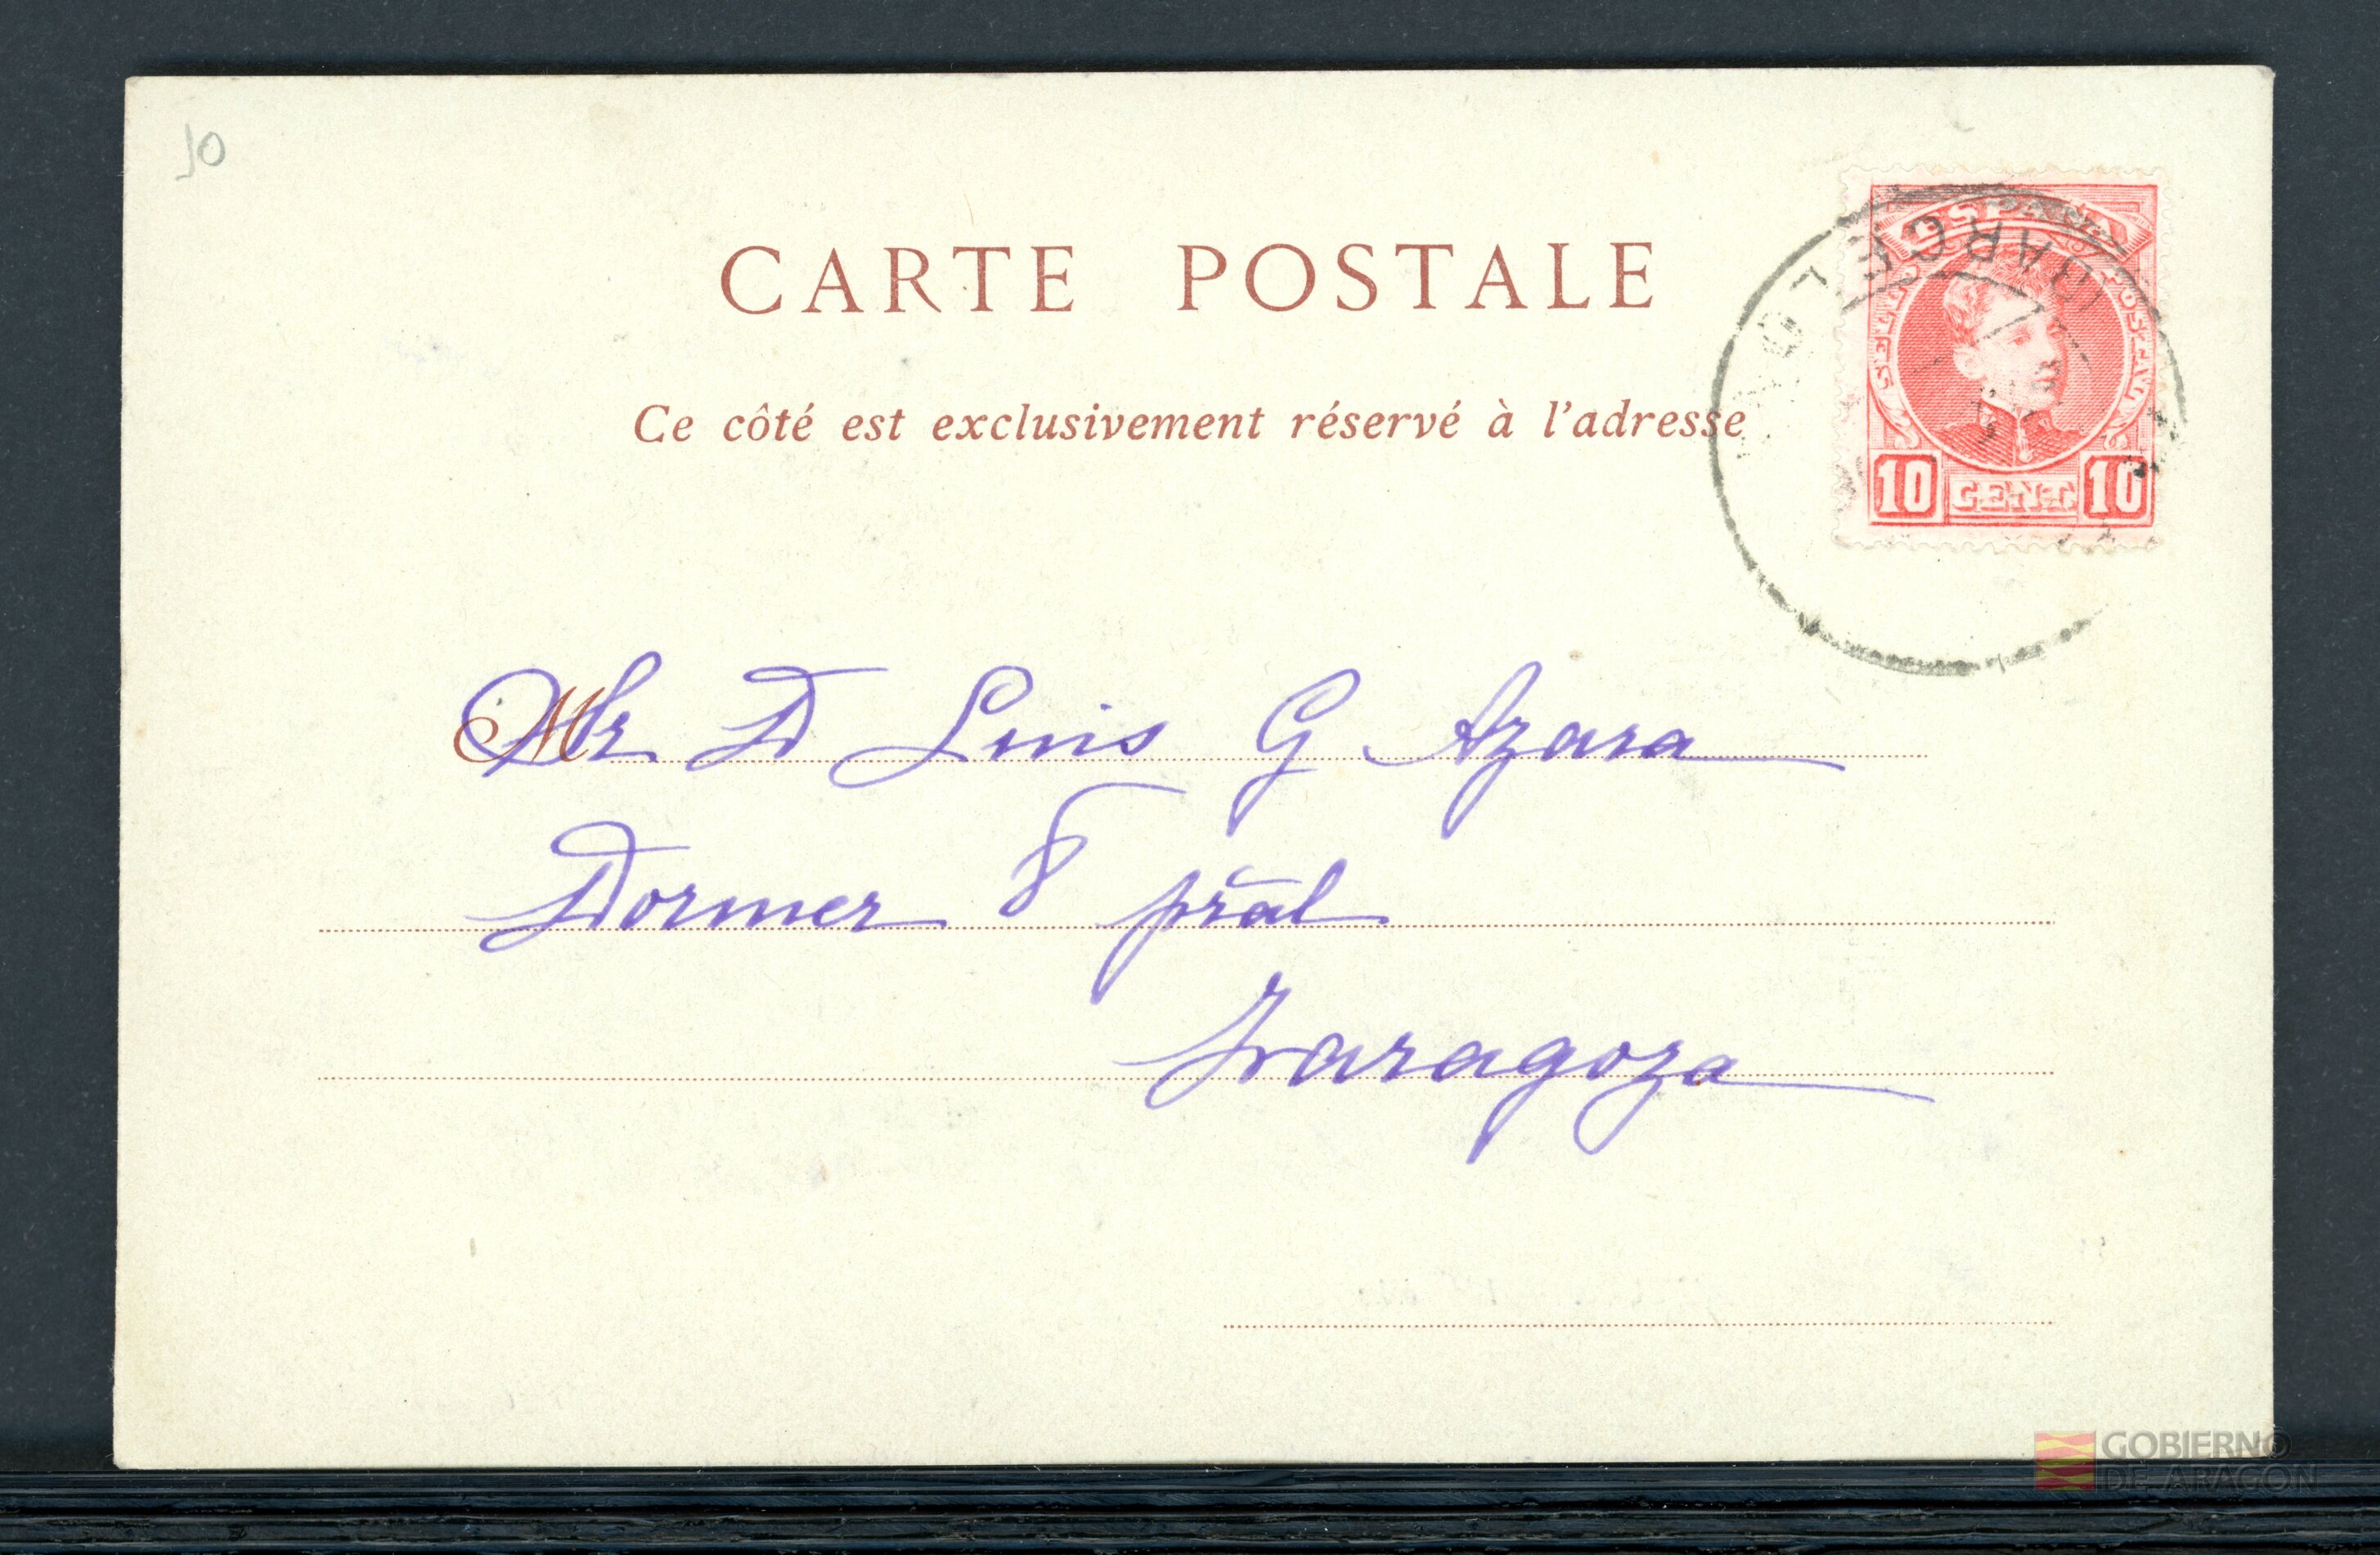 10
CARTE POSTALE
Ce côté est exclusivement réservé à l'adresse
ESPAÑA
10 CENT. 10
M Sr D Luis G Azara
Dormer 8 pràl
Zaragoza
GOBIERNO
DE ARAGON